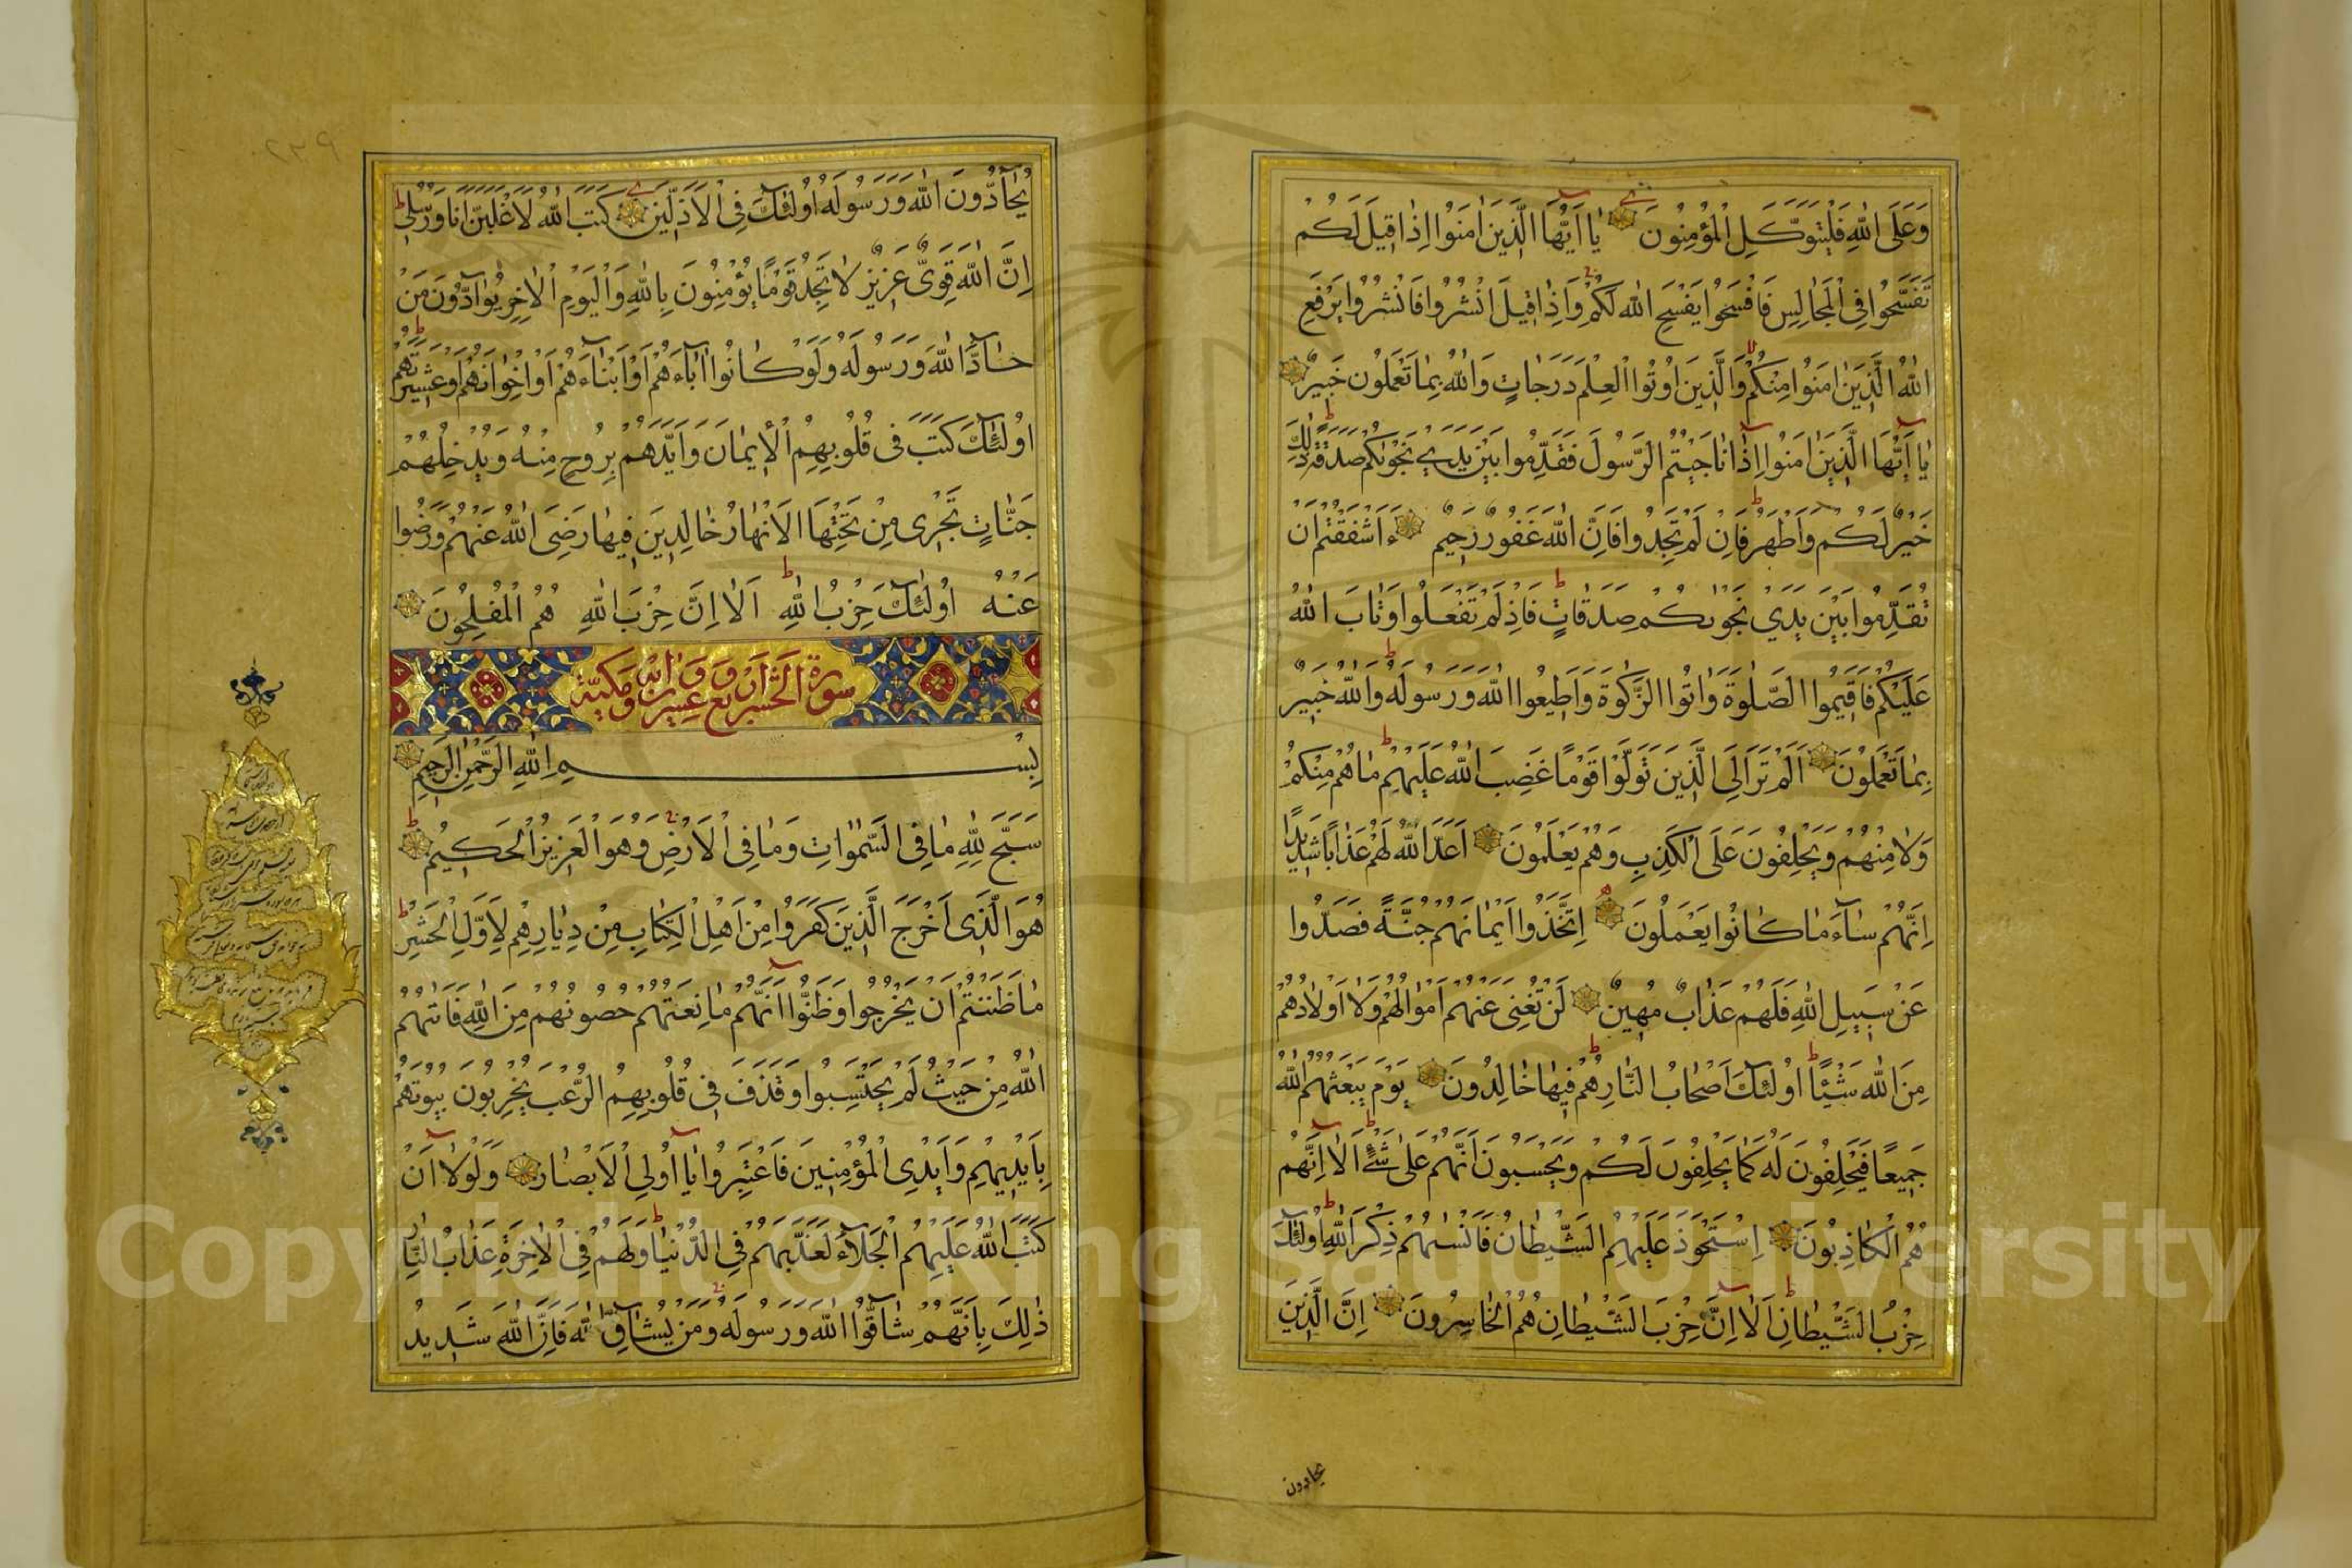 وَعَلَى اللّٰهِ فَلْيَتَوَكَّلِ الْمُؤْمِنُونَ يٰا اَيُّهَا الَّذِينَ اٰمَنُوا اِذٰا قِيلَ لَكُمْ
تَفَسَّحُوا فِى الْمَجٰالِسِ فَافْسَحُوا يَفْسَحِ اللّٰهُ لَكُمْ وَاِذٰا قِيلَ انْشُزُوا فَانْشُزُوا يَرْفَعِ
اللّٰهُ الَّذِينَ اٰمَنُوا مِنْكُمْ وَالَّذِينَ اُوتُوا الْعِلْمَ دَرَجٰاتٍ وَاللّٰهُ بِمٰا تَعْمَلُونَ خَبِيرٌ
يٰا اَيُّهَا الَّذِينَ اٰمَنُوا اِذٰا نٰاجَيْتُمُ الرَّسُولَ فَقَدِّمُوا بَيْنَ يَدَيْ نَجْوٰىكُمْ صَدَقَةً ذٰلِكَ
خَيْرٌ لَكُمْ وَاَطْهَرُ فَاِنْ لَمْ تَجِدُوا فَاِنَّ اللّٰهَ غَفُورٌ رَحِيمٌ ءَاَشْفَقْتُمْ اَنْ
تُقَدِّمُوا بَيْنَ يَدَيْ نَجْوٰىكُمْ صَدَقٰاتٍ فَاِذْ لَمْ تَفْعَلُوا وَتٰابَ اللّٰهُ
عَلَيْكُمْ فَاَقِيمُوا الصَّلٰوةَ وَاٰتُوا الزَّكٰوةَ وَاَطِيعُوا اللّٰهَ وَرَسُولَهُ وَاللّٰهُ خَبِيرٌ
بِمٰا تَعْمَلُونَ اَلَمْ تَرَ اِلَى الَّذِينَ تَوَلَّوْا قَوْمًا غَضِبَ اللّٰهُ عَلَيْهِمْ مٰا هُمْ مِنْكُمْ
وَلٰا مِنْهُمْ وَيَحْلِفُونَ عَلَى الْكَذِبِ وَهُمْ يَعْلَمُونَ اَعَدَّ اللّٰهُ لَهُمْ عَذٰابًا شَدِيدًا
اِنَّهُمْ سٰاءَ مٰا كٰانُوا يَعْمَلُونَ اِتَّخَذُوا اَيْمٰانَهُمْ جُنَّةً فَصَدُّوا
عَنْ سَبِيلِ اللّٰهِ فَلَهُمْ عَذٰابٌ مُهِينٌ لَنْ تُغْنِىَ عَنْهُمْ اَمْوٰالُهُمْ وَلٰا اَوْلٰادُهُمْ
مِنَ اللّٰهِ شَيْئًا اُولٰئِكَ اَصْحٰابُ النّٰارِ هُمْ فِيهٰا خٰالِدُونَ يَوْمَ يَبْعَثُهُمُ اللّٰهُ
جَمِيعًا فَيَحْلِفُونَ لَهُ كَمٰا يَحْلِفُونَ لَكُمْ وَيَحْسَبُونَ اَنَّهُمْ عَلٰى شَيْءٍ اَلٰا اِنَّهُمْ
هُمُ الْكٰاذِبُونَ اِسْتَحْوَذَ عَلَيْهِمُ الشَّيْطٰانُ فَاَنْسٰىهُمْ ذِكْرَ اللّٰهِ اُولٰئِكَ
حِزْبُ الشَّيْطٰانِ اَلٰا اِنَّ حِزْبَ الشَّيْطٰانِ هُمُ الْخٰاسِرُونَ اِنَّ الَّذِينَ
يحادون
يُحٰادُّونَ اللّٰهَ وَرَسُولَهُ اُولٰئِكَ فِى الْاَذَلِّينَ كَتَبَ اللّٰهُ لَاَغْلِبَنَّ اَنَا وَرُسُلِى
اِنَّ اللّٰهَ قَوِىٌّ عَزِيزٌ لٰا تَجِدُ قَوْمًا يُؤْمِنُونَ بِاللّٰهِ وَالْيَوْمِ الْاٰخِرِ يُوٰادُّونَ مَنْ
حٰادَّ اللّٰهَ وَرَسُولَهُ وَلَوْ كٰانُوا اٰبٰاءَهُمْ اَوْ اَبْنٰاءَهُمْ اَوْ اِخْوٰانَهُمْ اَوْ عَشِيرَتَهُمْ
اُولٰئِكَ كَتَبَ فِى قُلُوبِهِمُ الْاِيمٰانَ وَاَيَّدَهُمْ بِرُوحٍ مِنْهُ وَيُدْخِلُهُمْ
جَنّٰاتٍ تَجْرِى مِنْ تَحْتِهَا الْاَنْهٰارُ خٰالِدِينَ فِيهٰا رَضِىَ اللّٰهُ عَنْهُمْ وَرَضُوا
عَنْهُ اُولٰئِكَ حِزْبُ اللّٰهِ اَلٰا اِنَّ حِزْبَ اللّٰهِ هُمُ الْمُفْلِحُونَ
سورة الحشر اربع وعشرون
بِسْمِ اللّٰهِ الرَّحْمٰنِ الرَّحِيمِ
سَبَّحَ لِلّٰهِ مٰا فِى السَّمٰوٰاتِ وَمٰا فِى الْاَرْضِ وَهُوَ الْعَزِيزُ الْحَكِيمُ
هُوَ الَّذِى اَخْرَجَ الَّذِينَ كَفَرُوا مِنْ اَهْلِ الْكِتٰابِ مِنْ دِيٰارِهِمْ لِاَوَّلِ الْحَشْرِ
مٰا ظَنَنْتُمْ اَنْ يَخْرُجُوا وَظَنُّوا اَنَّهُمْ مٰانِعَتُهُمْ حُصُونُهُمْ مِنَ اللّٰهِ فَاَتٰىهُمُ
اللّٰهُ مِنْ حَيْثُ لَمْ يَحْتَسِبُوا وَقَذَفَ فِى قُلُوبِهِمُ الرُّعْبَ يُخْرِبُونَ بُيُوتَهُمْ
بِاَيْدِيهِمْ وَاَيْدِى الْمُؤْمِنِينَ فَاعْتَبِرُوا يٰا اُولِى الْاَبْصٰارِ وَلَوْلٰا اَنْ
كَتَبَ اللّٰهُ عَلَيْهِمُ الْجَلٰاءَ لَعَذَّبَهُمْ فِى الدُّنْيٰا وَلَهُمْ فِى الْاٰخِرَةِ عَذٰابُ النّٰارِ
ذٰلِكَ بِاَنَّهُمْ شٰاقُّوا اللّٰهَ وَرَسُولَهُ وَمَنْ يُشٰاقِّ اللّٰهَ فَاِنَّ اللّٰهَ شَدِيدُ
Copyright © King Saud University